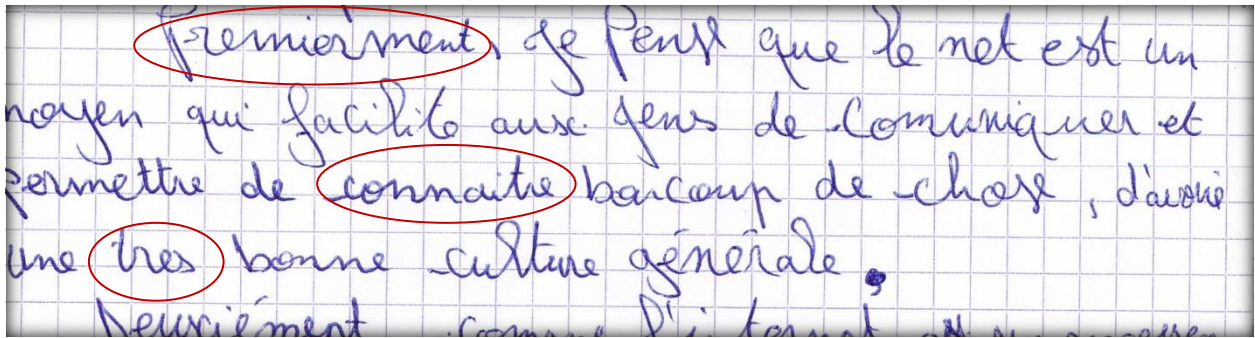 Premierment, je Pense que le net est un
moyen qui facilite aux gens de Comuniquer et
permettre de connaitre baucoup de chose, d'avoir
une tres bonne culture générale.
Deuxiément comme l'internet est un